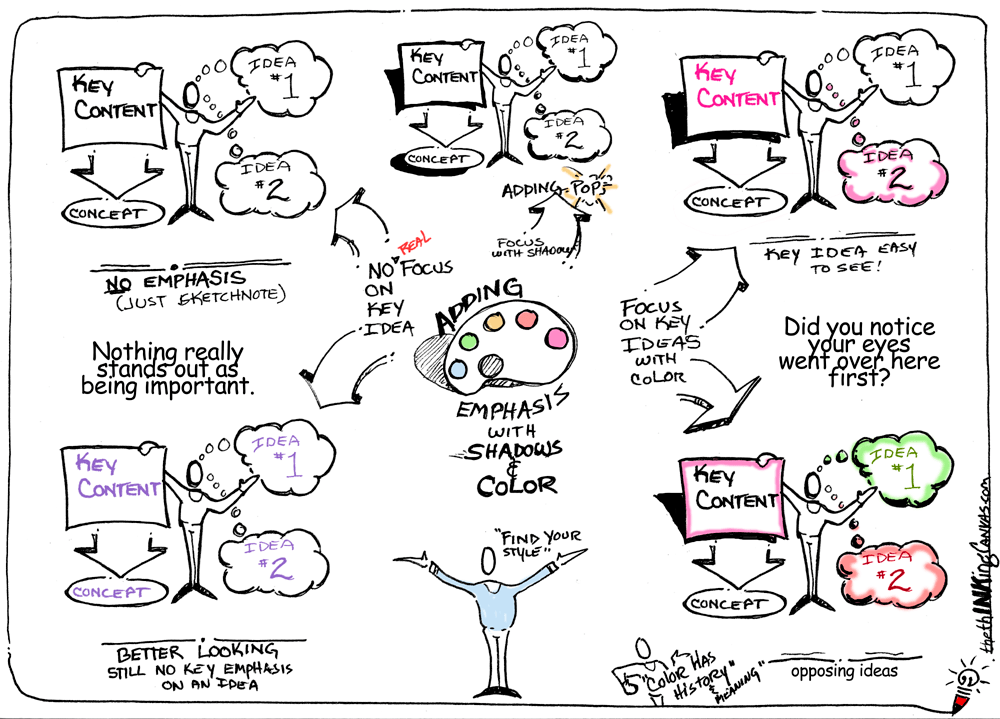 KEY
CONTENT
IDEA
#1
IDEA
#2
CONCEPT
NO EMPHASIS
(JUST SKETCHNOTE)
Nothing really
stands out as
being important.
KEY
CONTENT
IDEA
#1
IDEA
#2
CONCEPT
ADDING POP
FOCUS
WITH SHADOW
REAL
NO FOCUS
ON
KEY
IDEA
KEY
CONTENT
IDEA
#1
IDEA
#2
CONCEPT
KEY IDEA EASY
TO SEE!
FOCUS
ON KEY
IDEAS
WITH
COLOR
Did you notice
your eyes
went over here
first?
ADDING
EMPHASIS
WITH
SHADOWS
&
COLOR
KEY
CONTENT
IDEA
#1
IDEA
#2
CONCEPT
BETTER LOOKING
STILL NO KEY EMPHASIS
ON AN IDEA
"FIND YOUR
STYLE"
KEY
CONTENT
IDEA
#1
IDEA
#2
CONCEPT
"COLOR HAS
HISTORY"
& MEANING"
opposing ideas
thethINKingCanvas.com